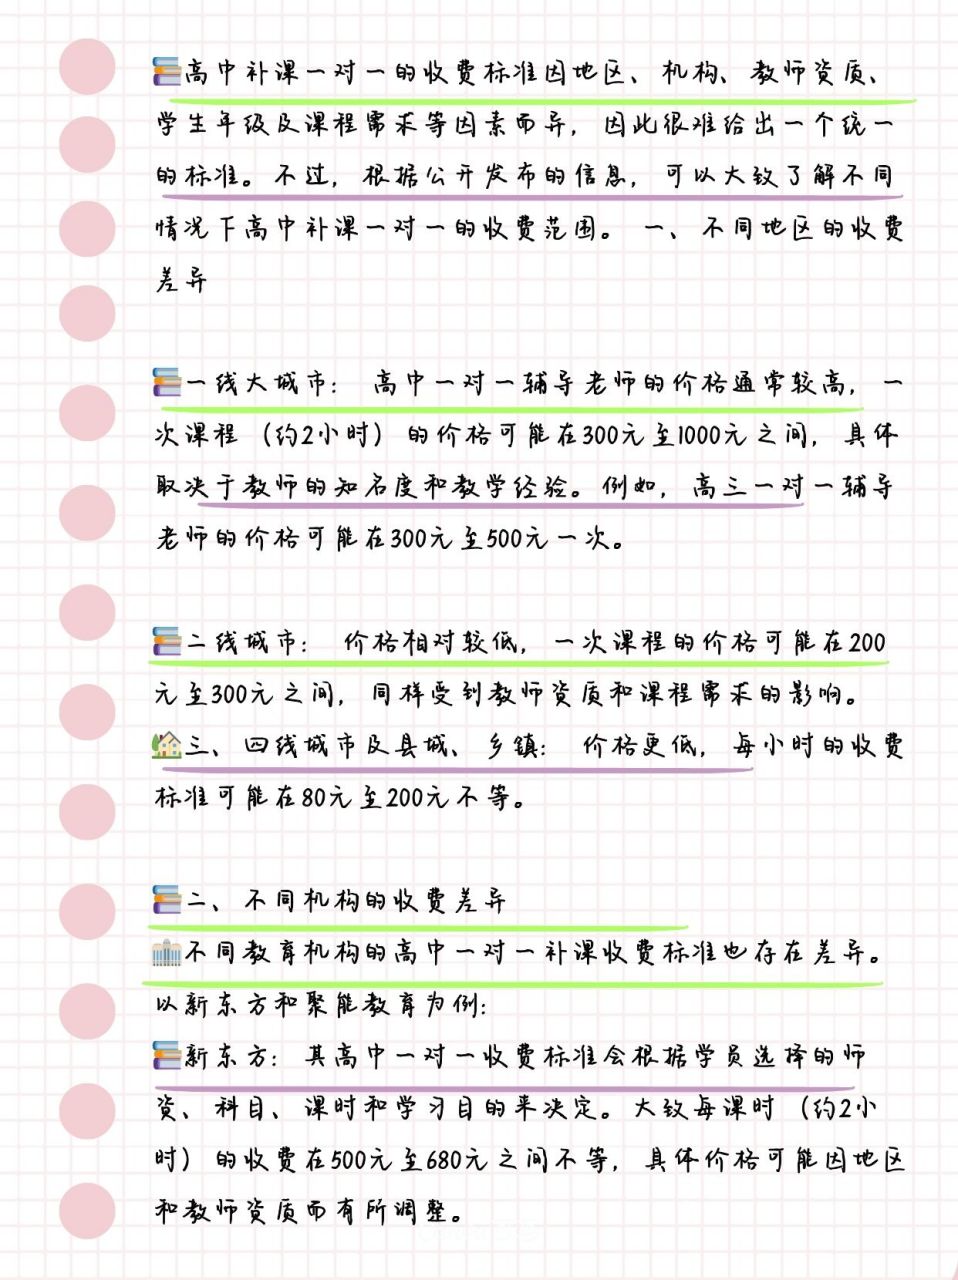 📚高中补课一对一的收费标准因地区、机构、教师资质、
学生年级及课程需求等因素而异，因此很难给出一个统一
的标准。不过，根据公开发布的信息，可以大致了解不同
情况下高中补课一对一的收费范围。 一、不同地区的收费
差异
📚一线大城市： 高中一对一辅导老师的价格通常较高，一
次课程（约2小时）的价格可能在300元至1000元之间，具体
取决于教师的知名度和教学经验。例如，高三一对一辅导
老师的价格可能在300元至500元一次。
📚二线城市： 价格相对较低，一次课程的价格可能在200
元至300元之间，同样受到教师资质和课程需求的影响。
🏡三、四线城市及县城、乡镇： 价格更低，每小时的收费
标准可能在80元至200元不等。
📚二、不同机构的收费差异
🏫不同教育机构的高中一对一补课收费标准也存在差异。
以新东方和聚能教育为例：
📚新东方：其高中一对一收费标准会根据学员选择的师
资、科目、课时和学习目的来决定。大致每课时（约2小
时）的收费在500元至680元之间不等，具体价格可能因地区
和教师资质而有所调整。